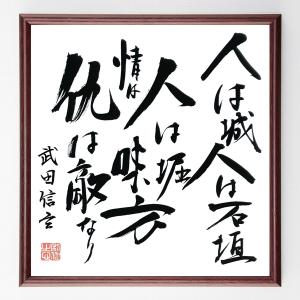 人は城人は石垣
人は堀
情は味方
仇は敵なり
武田信玄